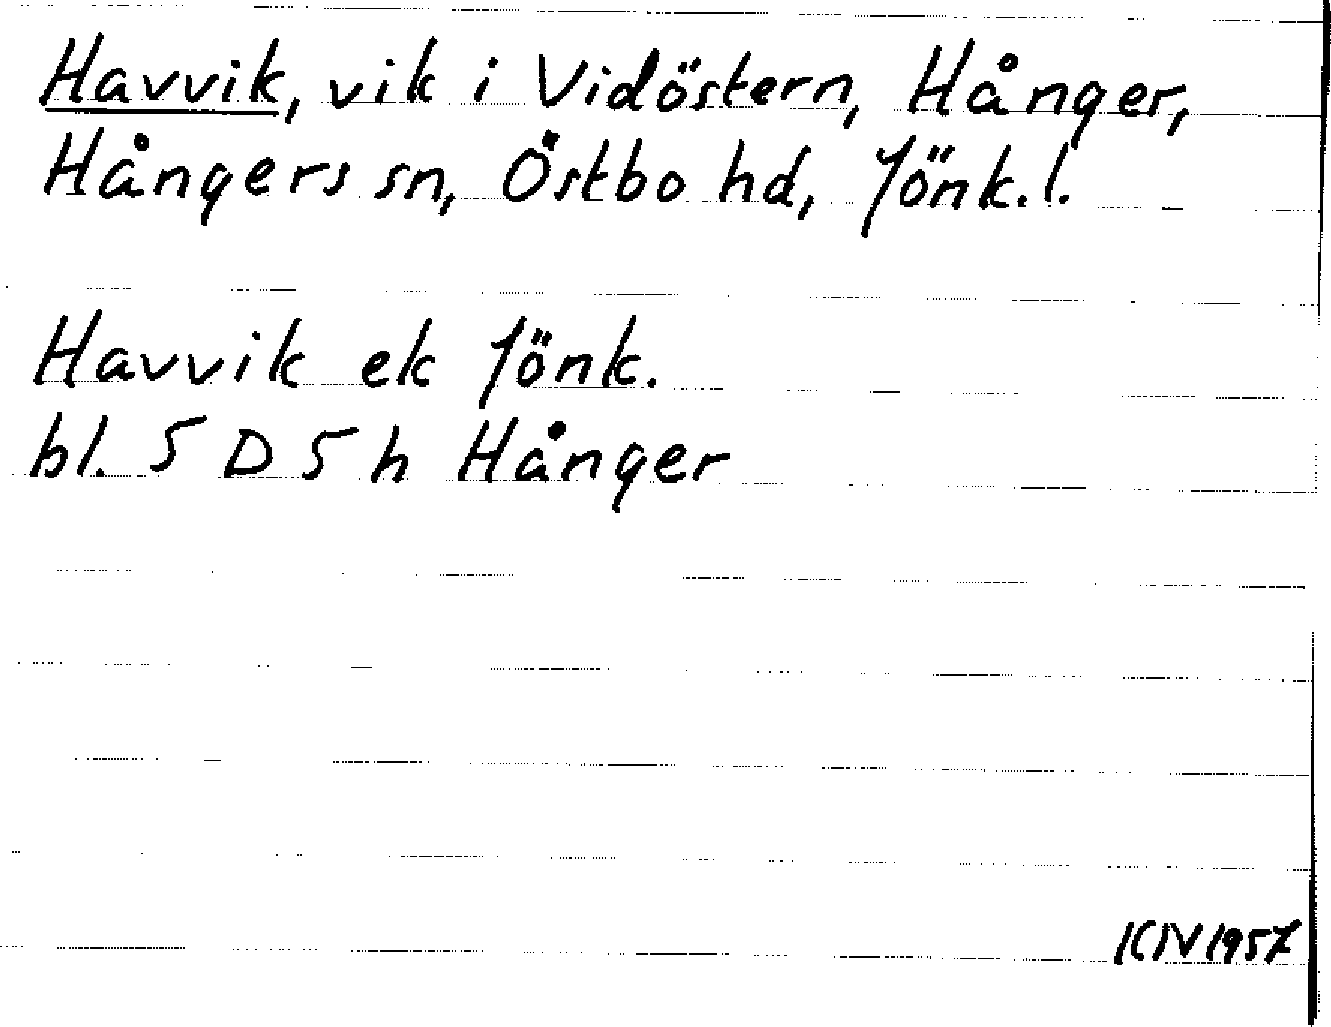 Havvik, vik i Vidöstern, Hånger,
Hångers sn, Östbo hd, Jönk. l.
Havvik ek Jönk.
bl. 5 D 5 h Hånger
KN 1957